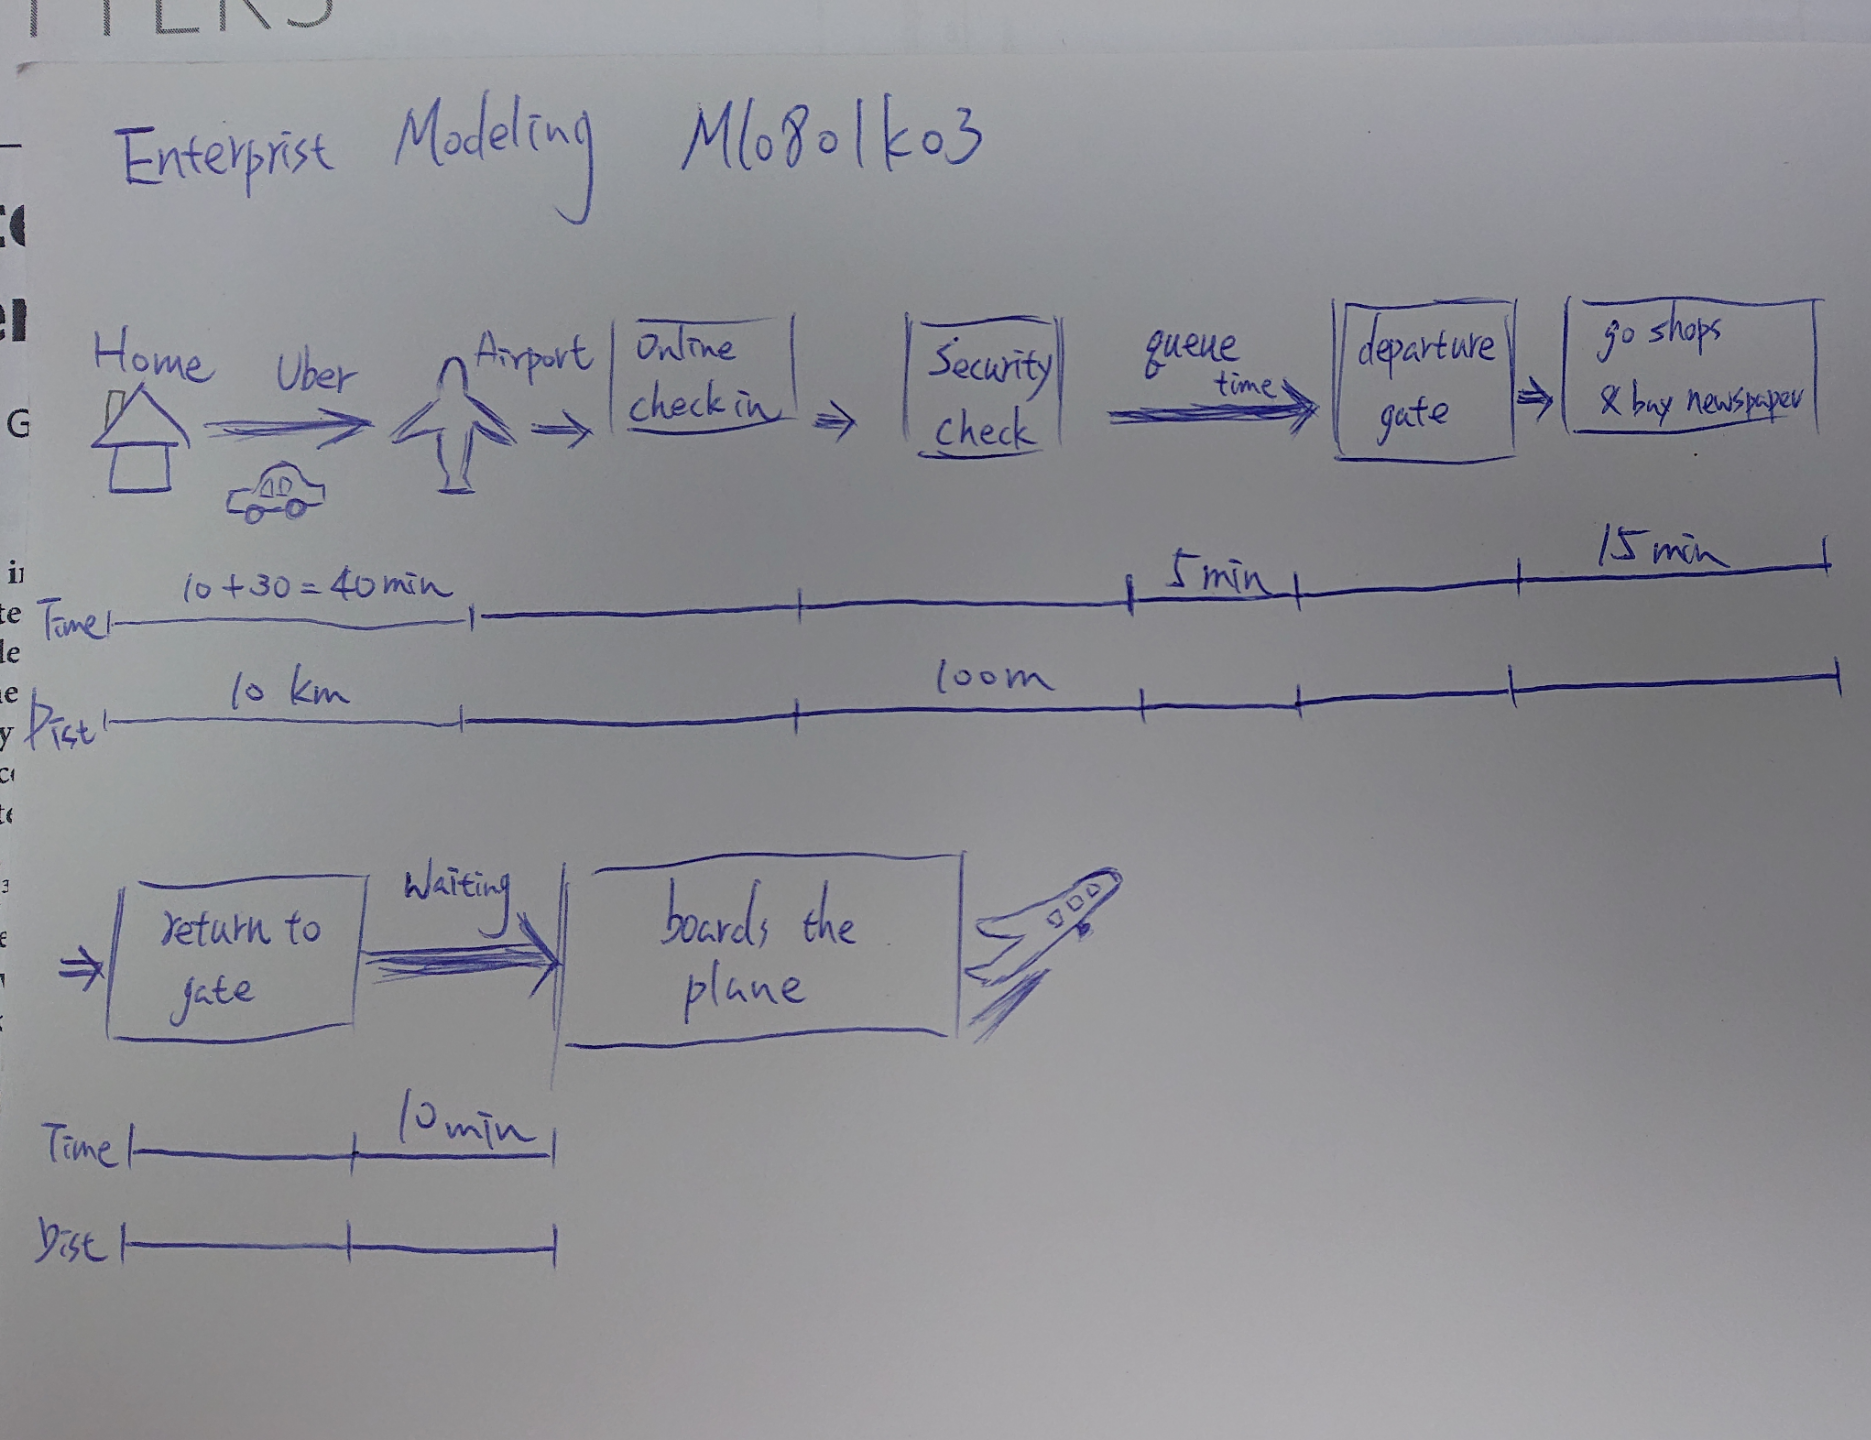 Enterprist Modeling M10801k03
Home
Uber
Airport
Online
check in
Security
check
queue
time
departure
gate
go shops
& buy newspaper
Time
10+30=40min
5min
15min
Dist
10 km
100m
return to
gate
Waiting
boards the
plane
Time
10min
Dist